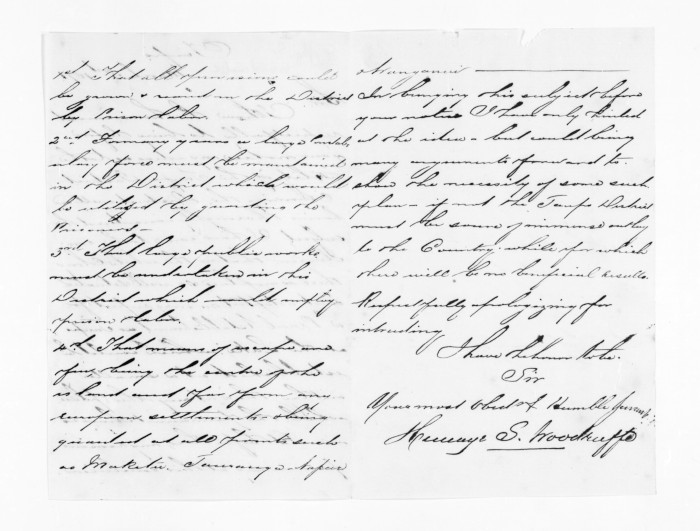 1st That all provisions could
be grown & raised in the District
by Prison labor.
2nd For many years a large Constab
ulary force must be maintained
in the District which would
be utilized by guarding the
Prisoners—
3rd That large public works
must be undertaken in this
District which would employ
prison labor.
4th That means of escape are
few, being the centre of the
island and far from any
european settlement & being
guarded at all points such
as Maketu, Tauranga Napier
Wanganui
In bringing this subject before
your notice I have only hinted
at the idea - but could bring
many arguments forward to
show the necessity of some such
plan - if not the Taupo District
must be source of immense outlay
to the Country, while for which
there will be no beneficial results.
Respectfully apologizing for
intruding
I have the honor to be.
Sir
Your most Obedt & Humble Servant
S. Woodruffe